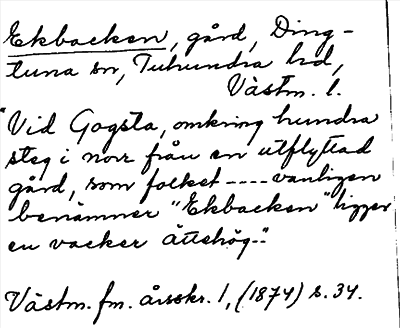 Ekbacken, gård, Ding-
tuna sn, Tuhundra hd,
Västm. l.
"Vid Gogsta, omkring hundra
steg i norr från en utflyttad
gård, som folket ---- vanligen
benämner "Ekbacken" ligger
en vacker ättehög.-"
Västm. fm. årsskr. 1, (1874) s. 34.